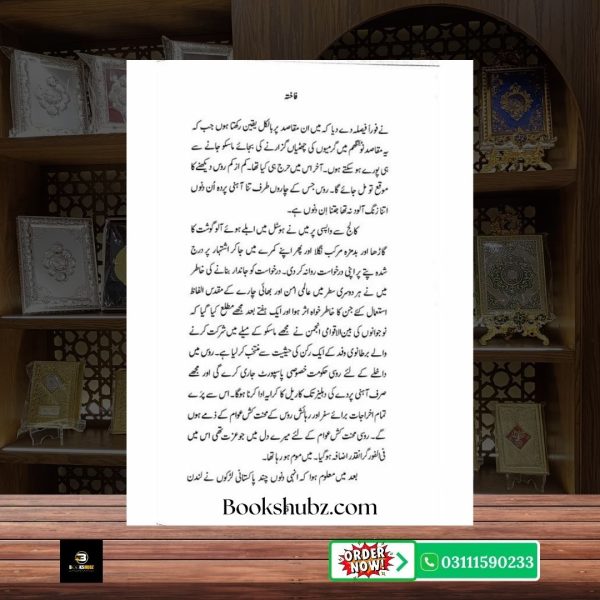 فاختہ
نے فوراً فیصلہ دے دیا کہ میں ان مقاصد پر بالکل یقین رکھتا ہوں جب کہ
یہ مقاصد نوٹنگھم میں گرمیوں کی چھٹیاں گزارنے کی بجائے ماسکو جانے سے
ہی پورے ہو سکتے ہوں۔ آخر اس میں حرج ہی کیا تھا۔ کم از کم روس دیکھنے کا
موقع تو مل جائے گا۔ روس جس کے چاروں طرف تنا آہنی پردہ اُن دِنوں
اتنا زنگ آلود نہ تھا جتنا اِن دِنوں ہے۔
کالج سے واپسی پر میں نے ہوسٹل میں ابلے ہوئے آلو گوشت کا
گاڑھا اور بدمزہ مرکب نگلا اور پھر اپنے کمرے میں جا کر اشتہار پر درج
شدہ پتے پر اپنی درخواست روانہ کر دی۔ درخواست کو جاندار بنانے کی خاطر
میں نے ہر دوسری سطر میں عالمی امن اور بھائی چارے کے مقدس الفاظ
استعمال کئے جن کا خاطر خواہ اثر ہوا اور ایک ہفتے بعد مجھے مطلع کیا گیا کہ
نوجوانوں کی بین الاقوامی انجمن نے مجھے ماسکو کے میلے میں شرکت کرنے
والے برطانوی وفد کے ایک رکن کی حیثیت سے منتخب کر لیا ہے۔ روس میں
داخلے کے لئے روسی حکومت خصوصی پاسپورٹ جاری کرے گی اور مجھے
صرف آہنی پردے کی دہلیز تک کا ریل کا کرایہ ادا کرنا ہوگا۔ اس سے پرے
تمام اخراجات برائے سفر اور رہائش روس کے محنت کش عوام کے ذمے ہوں
گے۔ روسی محنت کش عوام کے لئے میرے دل میں جو عزت تھی اس میں
فی الفور گرانقدر اضافہ ہو گیا۔ میں موم ہو رہا تھا۔
بعد میں معلوم ہوا کہ انہی دِنوں چند پاکستانی لڑکوں نے لندن
Bookshubz.com
ORDER NOW!
03111590233